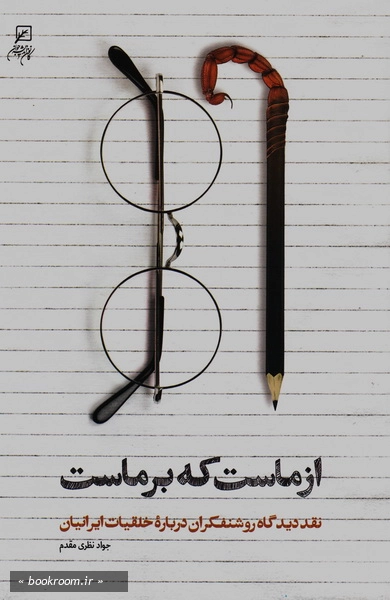 از ماست که بر ماست
نقد دیدگاه روشنفکران دربارهٔ خلقیات ایرانیان
جواد نظری مقدم
« bookroom.ir »